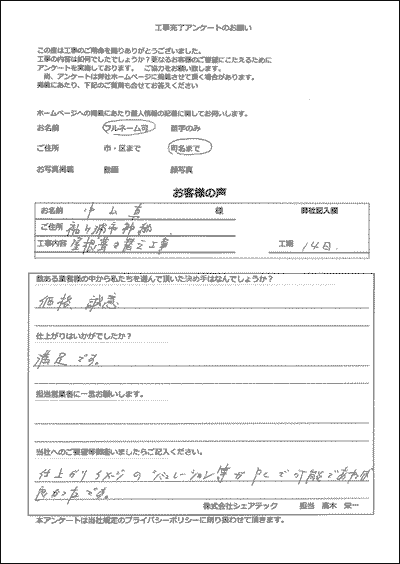 工事完了アンケートのお願い
この度は工事のご用命を賜りありがとうございました。
工事の内容は如何でしたでしょうか？更なるお客様のご要望にこたえるために
アンケートを実施しております。 ご協力をお願い致します。
尚、アンケートは弊社ホームページに掲載させて頂く場合があります。
掲載にあたり、下記のご質問も含めてお答えください
ホームページへの掲載にあたり個人情報の記載に関してお伺いします。
お名前 フルネーム可 苗字のみ
ご住所 市・区まで 町名まで
お写真掲載 動画 顔写真
お客様の声
お名前 中山 様 弊社記入欄
ご住所
工事内容 屋根葺き替え工事 工期 14日.
数ある業者様の中から私たちを選んで頂いた決め手はなんでしょうか？
価格 誠意
仕上がりはいかがでしたか？
満足です。
担当営業者に一言お願いします。
当社へのご要望等御座いましたらご記入ください。
仕上がりイメージのシュミレーション等がPCで可能であれば
良かったです。
株式会社シェアテック 担当 高木 栄一
本アンケートは当社規定のプライバシーポリシーに則り扱わせて頂きます。